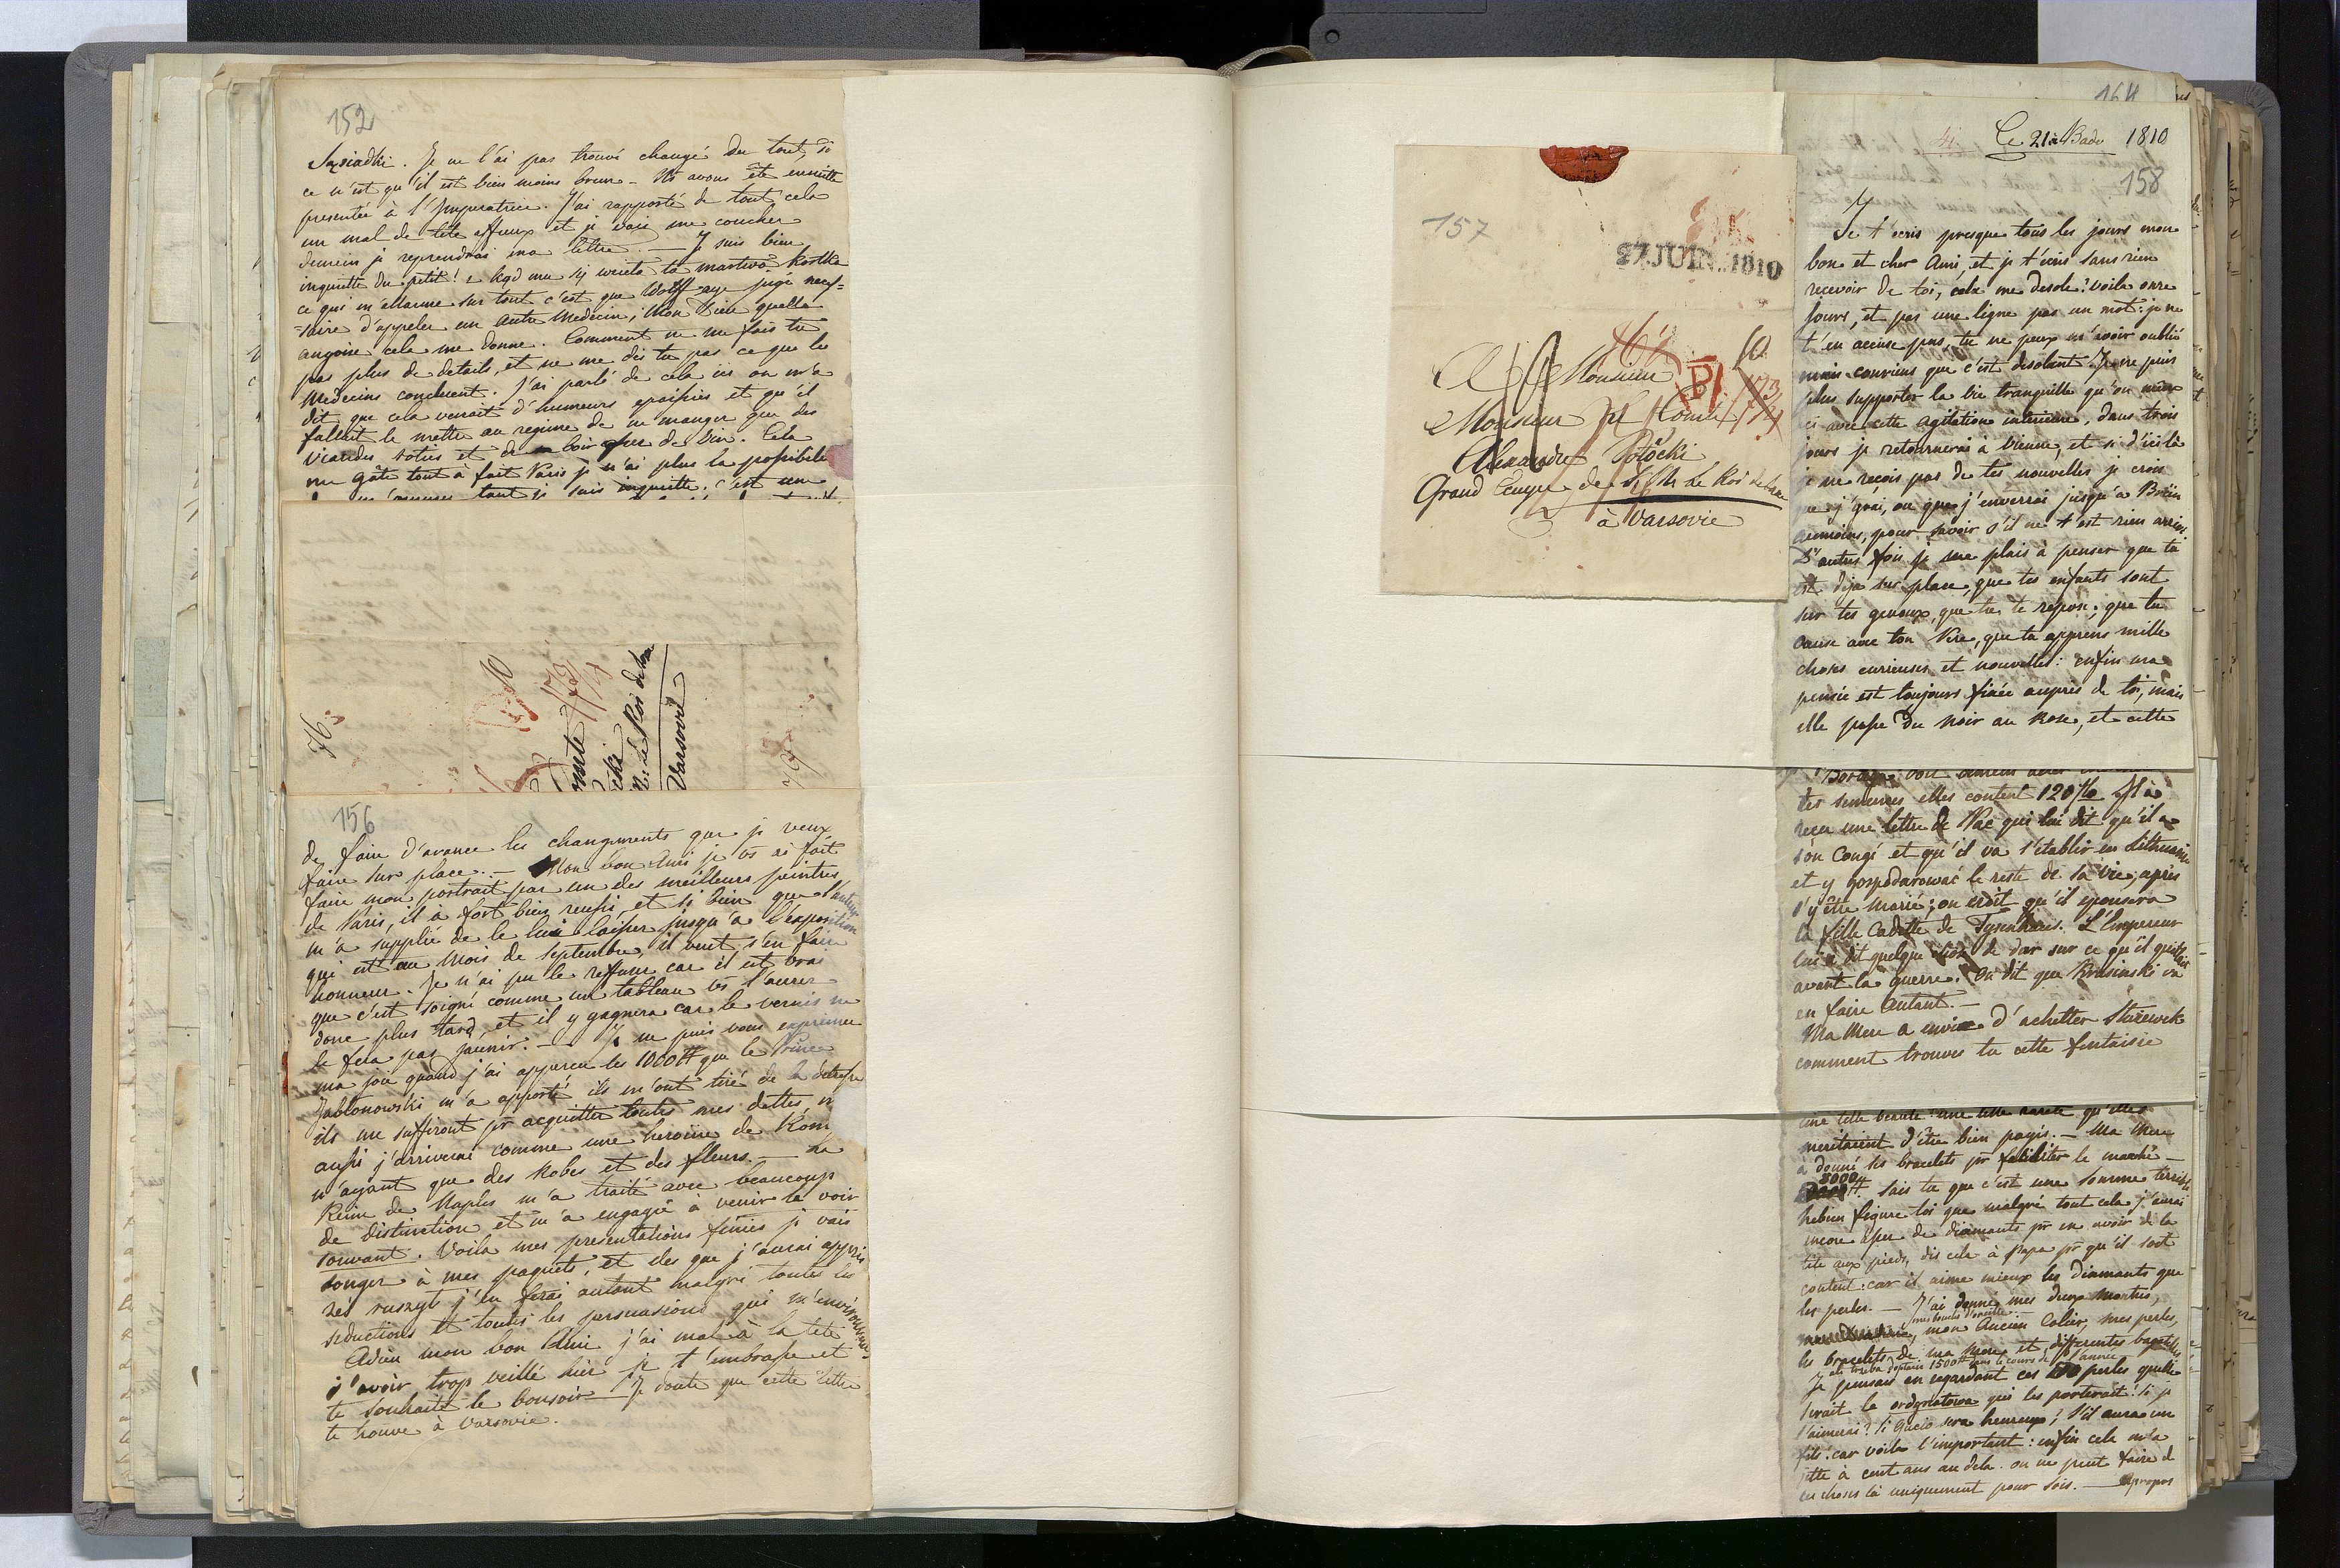 152
Sąsiadki. Je ne l'ai pas trouvé changé du tout, si
ce n'est qu'il est bien moins brun. Ns avons été ensuite
presentée à l'Imperatrice. J'ai rapporté de tout cela
un mal de tête affreux et je vais me coucher
demain je reprendrai ma lettre. — Je suis bien
inquiette du petit!
ce qui m'allarme sur tout c'est que Wolff aye jugé neces=
=saire d'appeler un autre Medecin, Mon Dieu quelle
angoise cela me donne. Comment ne me fais tu
pas plus de details, et ne me dis tu pas ce que les
Medecins concluent. J'ai parlé de cela ici on m'a
dit que cela venait d'humeurs epaissies et qu'il
fallait le mettre au regime de ne manger que des
viandes roties et de boire que du vin. Cela
me gâte tout à fait Paris je n'ai plus la possibilité
tant je suis inquiette. c'est une
76
10
173/4
omte
cki
M: Le Roi de Saxe
Varsovie
156
de faire d'avance les changements que je veux
faire sur place. — Mon bon Ami je vs ai fait
faire mon portrait par un des meilleurs peintres
de Paris, il a fort bien reussi, et si bien que l'auteur
m'a supplié de le lui laisser jusqu'à l'exposition
qui est au mois de septembre, il veut s'en faire
honneur. Je n'ai pu le reffuser car il est vrai
que c'est soigné comme un tableau vs l'aurez
donc plus tard, et il y gagnera car le vernis ne
le fera pas jaunir. — Je ne puis vous exprimer
ma joie quand j'ai apperçu les 1000# que le Prince
Jabłonowski m'a apporté ils m'ont tiré de la detresse
ils me suffiront pr acquitter toutes mes dettes
aussi j'arriverai comme une heroïne de Rom
n'ayant que des Robes et des fleurs. — La
Reine de Naples m'a traité avec beaucoup
de distinction et m'a engagée à venir la voir
souvant. Voila mes presentations finies je vais
songer à mes paquets, et des que j'aurai appris
żeś ruszył j'en ferai autant malgré toutes les
seductions et toutes les persuasions qui m'environnent
Adieu mon bon Ami j'ai mal à la tete
d'avoir trop veillé hier je t'embrasse et
te souhaite le bonsoir Je doute que cette lettre
te trouve à Varsovie.
157
27 JUIN 1810
A Monsieur
Monsieur le Comte
Alexandre Potocki
Grand Ecuyer de S: M: Le Roi de Saxe
à Varsovie
164
Le 21 à Bade 1810
158
Je t'ecris presque tous les jours mon
bon et cher Ami, et je t'ecris sans rien
recevoir de toi, cela me desole! voila onze
jours, et pas une ligne pas un mot: je ne
t'en accuse pas, tu ne peux m'avoir oublié
mais conviens que c'est desolant. Je ne puis
plus supporter la vie tranquille qu'on mène
ici avec cette agitation interieure, dans trois
jours je retournerai à Vienne, et si d'ici là
je ne reçois pas de tes nouvelles je crois
que j'irai, ou que j'enverrai jusqu'à Brün
aumoins, pour savoir s'il ne t'est rien arrivé.
D'autres fois je me plais à penser que tu
est deja sur place, que tes enfants sont
sur tes genoux, que tu te repose; que tu
cause avec ton Pere, que tu apprens mille
choses curieuses et nouvelles: enfin ma
pensée est toujours fixée auprès de toi, mais
elle passe du noir au rose, et cette
tes semences elles content 120
reçu une lettre de Pac qui lui dit qu'il a
son Congé et qu'il va s'établir en Lithuanie
et y gospodarować le reste de sa vie, après
s'y être marié; on croit qu'il épousera
la fille Cadette de Tysenhaus. L'Empereur
lui a dit quelque chose de dur sur ce qu'il quittait
avant la guerre. On dit que Krasinski va
en faire autant. —
Ma Mere a envie d'achetter
comment trouves tu cette fantaisie
une telle beauté! une telle rareté qu'elles
meritaient d'être bien payés. — Ma Mere
a donné ses bracelets pr faciliter le marché —
3000# Sais tu que c'est une somme terrible
hebien figure toi que malgré tout cela j'aurai
encore assez de diamants pr en avoir de la
tête aux pieds, dis cela à Papa pr qu'il soit
content: car il aime mieux les Diamants que
les perles. — J'ai donné mes deux montres,
mes boucles d'oreille
mon Ancien Colier, mes perles,
les bracelets de ma Mere, et differentes bagatelles
1500# dans le cours de l'année
Je pensais en regardant ces perles quelle
serait la ordynatowa qui les porterait! si je
l'aimerai? si Gucio sera heureux; s'il aura un
fils: car voila l'important: enfin cela m'a
jetté à cent ans au dela. on ne peut faire d
ces choses là uniquement pour sois. — Apropos